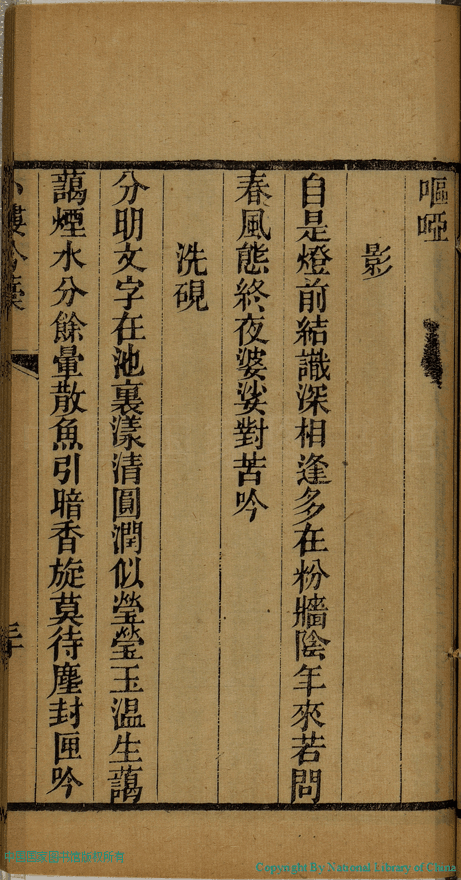 嘔啞
影
自是燈前結識深相逢多在粉牆陰年來若問
春風態終夜婆娑對苦吟
洗硯
分明文字在池裏漾清圓潤似瑩瑩玉温生藹
藹煙水分餘暈散魚引暗香旋莫待塵封匣吟
Copyright By National Library of China